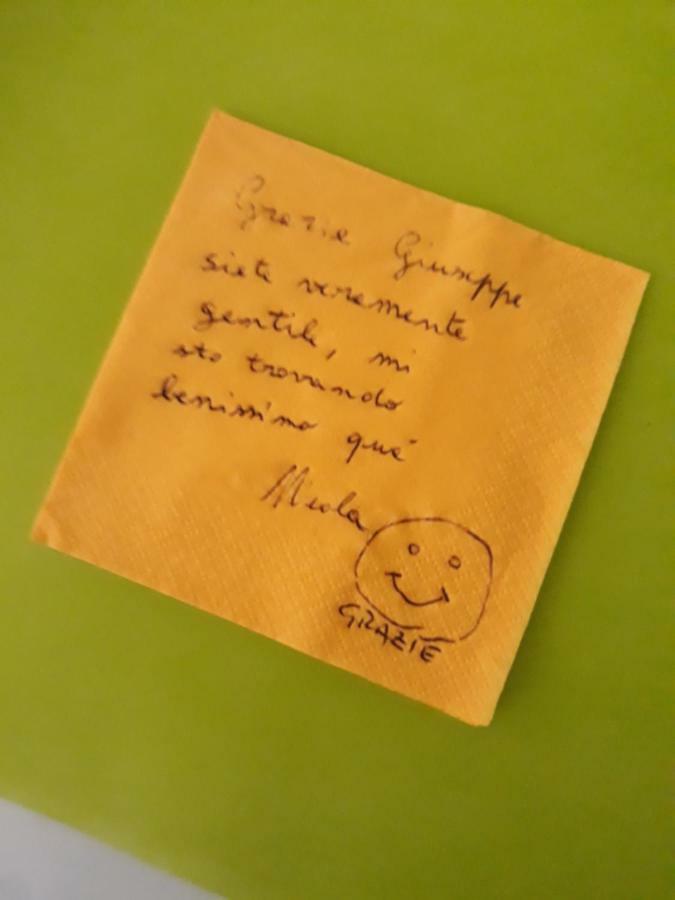 Grazie Giuseppe
siete veramente
gentile, mi
sto trovando
benissimo quà
GRAZIE